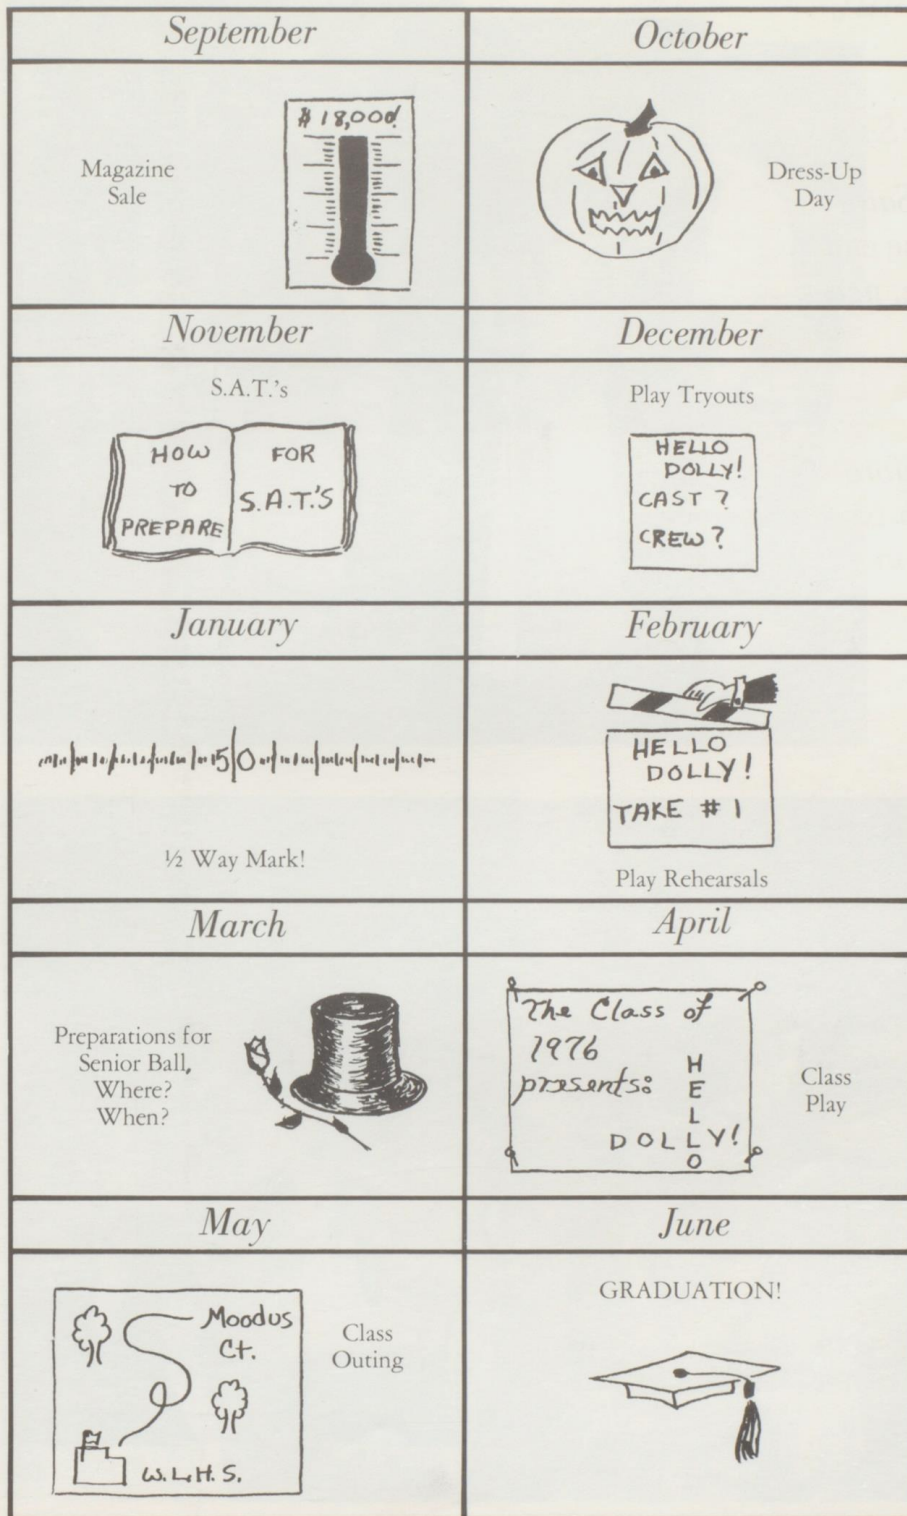 September
October
Magazine
Sale
$18,000.
Dress-Up
Day
November
December
S.A.T.'s
HOW
TO
PREPARE
FOR
S.A.T.'S
Play Tryouts
HELLO
DOLLY!
CAST?
CREW?
January
February
50
½ Way Mark!
HELLO
DOLLY!
TAKE #1
Play Rehearsals
March
April
Preparations for
Senior Ball,
Where?
When?
The Class of
1976
presents:
HELLO
DOLLY!
Class
Play
May
June
Moodus
Ct.
W.L.H.S.
Class
Outing
GRADUATION!